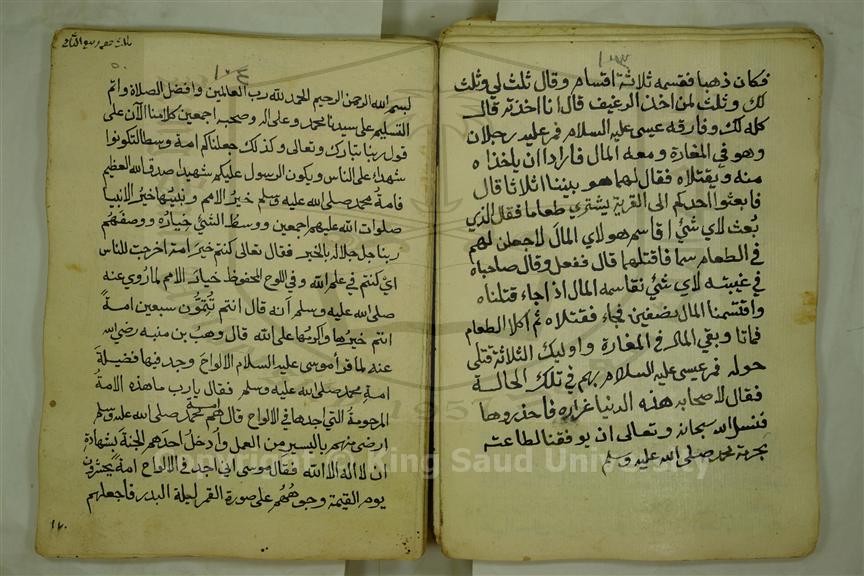 ١٠٣
فكان ذهبا فقسمه ثلاثة اقسام وقال ثلث لي وثلث
لك وثلث لمن اخذ الرغيف قال انا اخذته قال
كله لك وفارقه عيسى عليه السلام فمر عليه رجلان
وهو في المغارة ومعه المال فارادا ان ياخذاه
منه ويقتلاه فقال لهما هو بيننا اثلاثا قال
فابعثوا احدكم الى القرية يشتري طعاما فقال الذي
بعث لاي شئ اقاسم هولاي المال لاجعلن لهم
في الطعام سما فاقتلهما قال ففعل وقال صاحباه
في غيبته لاي شئ نقاسمه المال اذ اجاء قتلناه
واقتسمنا المال بضفين فجاء فقتلاه ثم اكلا الطعام
فماتا وبقي المال في المغارة واوليك الثلاثة قتلى
حوله فمر عيسى عليه السلام بهم في تلك الحالة
فقال لاصحابه هذه الدنيا غراره فاحذروها
فنسل الله سبحانه وتعالى ان يوفقنا لطاعته
بحرمة محمد صلى الله عليه وسلم
١٠٤
بسم الله الرحمن الرحيم الحمد لله رب العالمين وافضل الصلاة واتم
التسليم على سيدنا محمد وعلى اله وصحبه اجمعين كلامنا الآن على
قول ربنا تبارك وتعالى وكذلك جعلناكم امة وسطا لتكونوا
شهداء على الناس ويكون الرسول عليكم شهيدا صدق الله العظيم
فامة محمد صلى الله عليه وسلم خير الامم ونبيها خير الانبيا
صلوات الله عليهم اجمعين ووسط الشئ خياره ووصفهم
ربنا جل جلاله بالخير فقال تعالى كنتم خير امة اخرجت للناس
اي كنتم في علم الله وفي اللوح المحفوظ خيار الامم لما روي عنه
صلى الله عليه وسلم انه قال انتم تتمون سبعين امة
انتم خيرها واكرمها على الله قال وهب بن منبه رضي الله
عنه لما قرأ موسى عليه السلام الالواح وجد فيها فضيلة
امة محمد صلى الله عليه وسلم فقال يارب ما هذه الامة
المرحومة التي اجدها في الالواح قال هم امة محمد صلى الله عليه وسلم
ارضى منهم باليسير من العمل وأدخل احدهم الجنة بشهادة
ان لا اله الا الله فقال موسى اني اجد في الالواح امة يحشرون
يوم القيمة وجوههم على صورة القمر ليلة البدر فاجعلهم
١٢٠
Copyright © King Saud University
1957